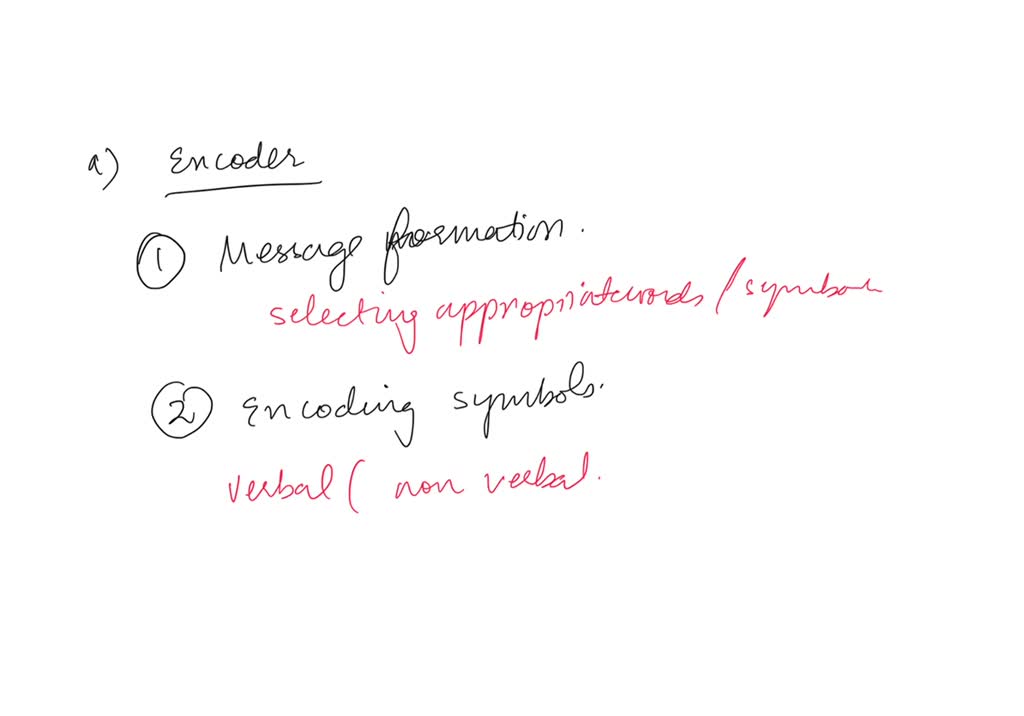 a) Encoder
① Message formation.
selecting appropriate words / symbol
② Encoding symbols.
verbal ( non verbal.